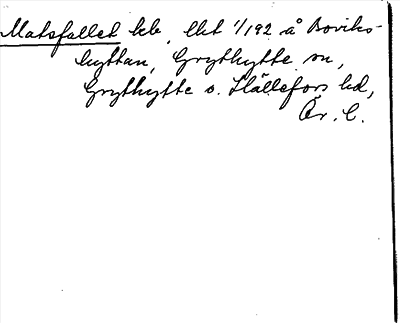 Matsfallet lht, litt 1/192 å Boviks-
hyttan, Grythytte sn,
Grythytte o. Hällefors hd,
Ör. l.